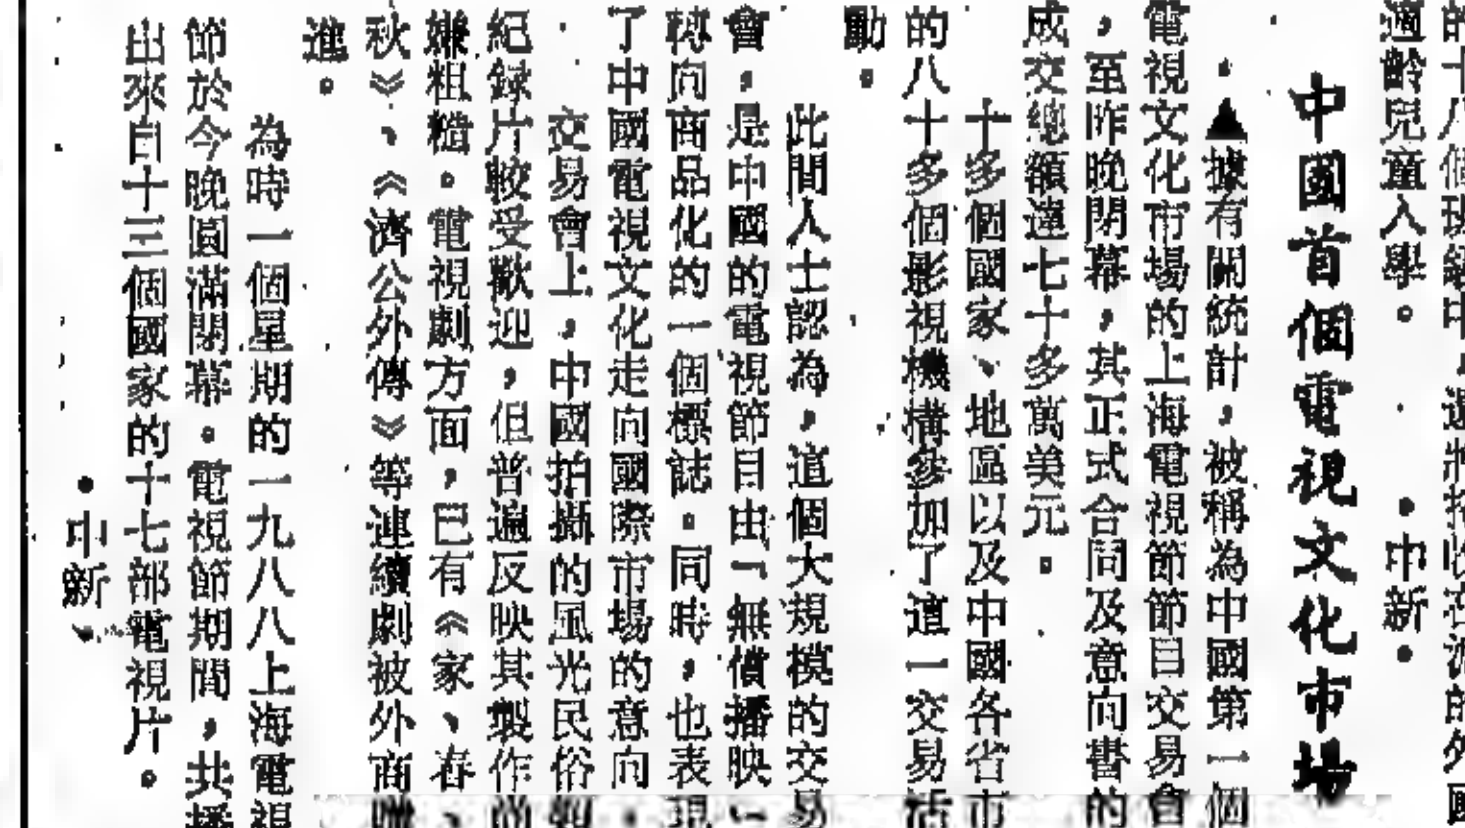 適齡兒童入學。
•中新•
中國首個電視文化市場
▲據有關統計，被稱為中國第一個
電視文化市場的上海電視節節目交易會
，至昨晚閉幕，其正式合同及意向書的
成交總額達七十多萬美元。
十多個國家、地區以及中國各省市
的八十多個影視機構參加了這一交易活
動。
此間人士認為，這個大規模的交易
會，是中國的電視節目由「無償播映」
轉向商品化的一個標誌。同時，也表現
了中國電視文化走向國際市場的意向
交易會上，中國拍攝的風光民俗
紀録片較受歡迎，但普遍反映其製作尚
嫌粗糙。電視劇方面，已有《家、春、
秋》、《濟公外傳》等連續劇被外商購
進。
為時一個星期的一九八八上海電視
節於今晚圓滿閉幕。電視節期間，共播
出來自十三個國家的十七部電視片。
•中新•